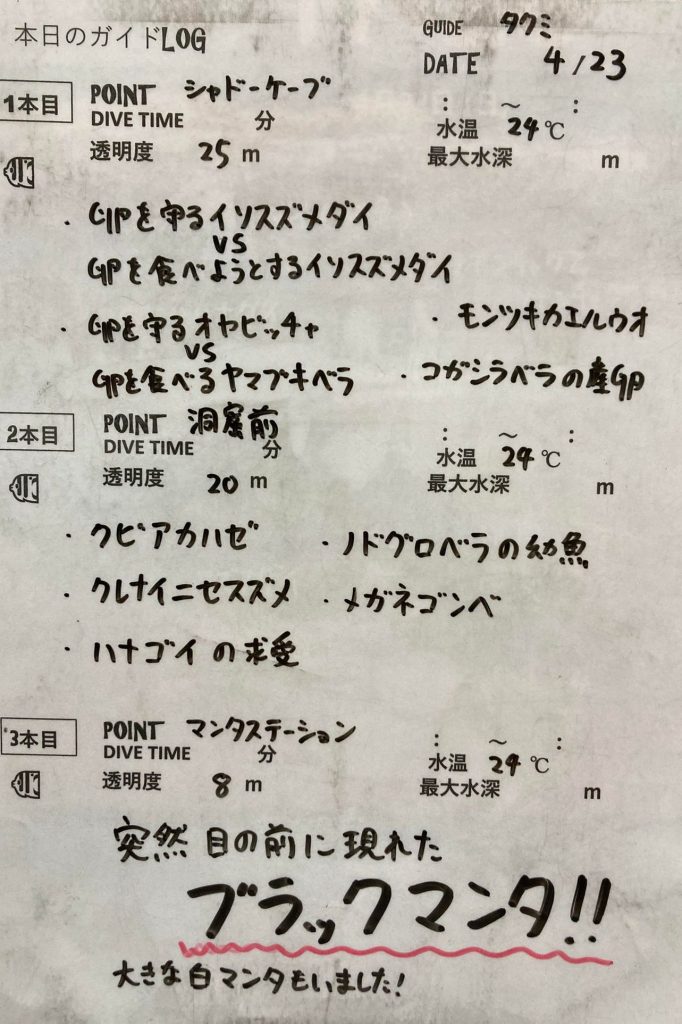 本日のガイドLOG
GUIDE タクミ
DATE 4/23
1本目 POINT シャドーケーブ
DIVE TIME 分 : ~ :
透明度 25 m 水温 24℃ 最大水深 m
・GPを守るイソスズメダイ
VS
GPを食べようとするイソスズメダイ
・GPを守るオヤビッチャ
VS
GPを食べるヤマブキベラ
・モンツキカエルウオ
・コガシラベラの産GP
2本目 POINT 洞窟前
DIVE TIME 分 : ~ :
透明度 20 m 水温 24℃ 最大水深 m
・クビアカハゼ
・クレナイニセスズメ
・ハナゴイの求愛
・ノドグロベラの幼魚
・メガネゴンベ
3本目 POINT マンタステーション
DIVE TIME 分 : ~ :
透明度 8 m 水温 24℃ 最大水深 m
突然目の前に現れた
ブラックマンタ!!
大きな白マンタもいました!